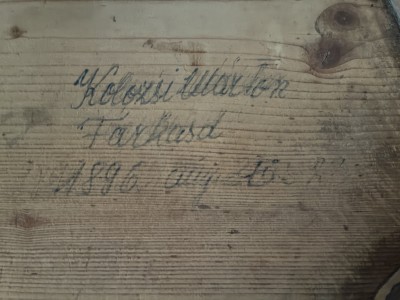 Kolozsi Márton
Farkasd
1896 aug